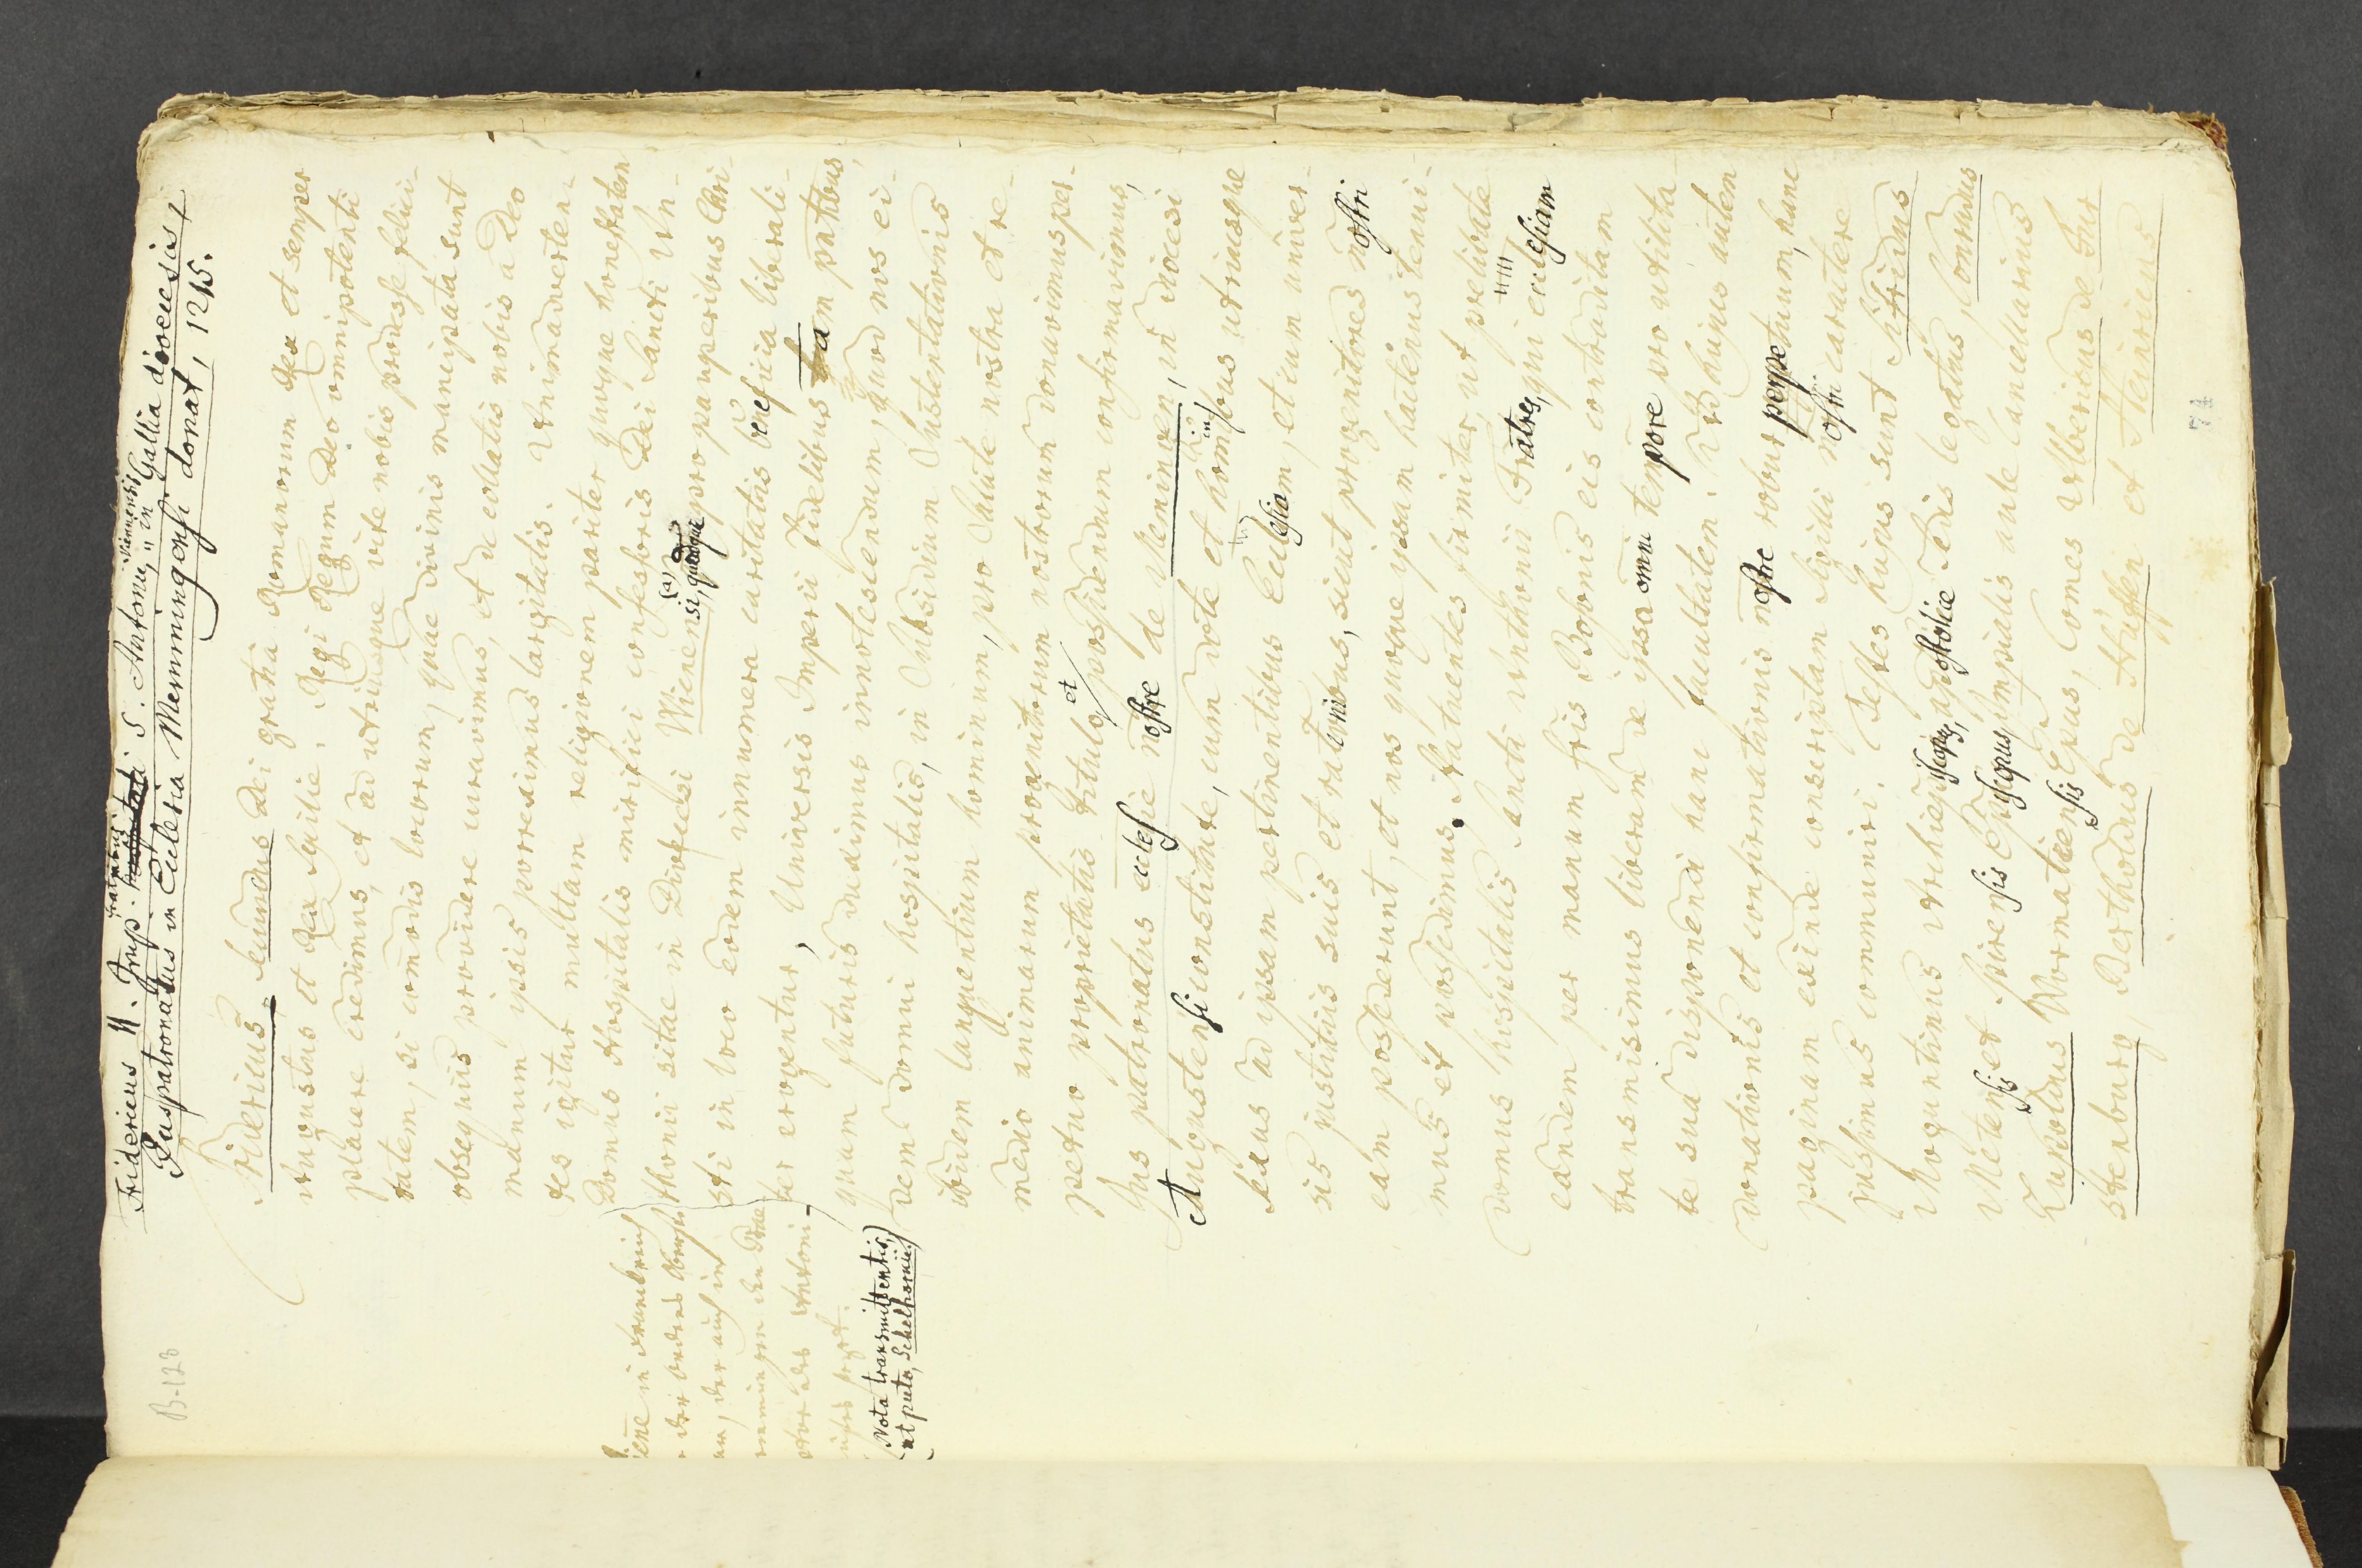 Fridericus II. Imp. fratribus S. Antonii, Viennensis in Gallia dioecesis,
Juspatronatus in Ecclesia Memmingensi donat, 1215.
Fridericus Secundus Dei gratia Romanorum Rex et semper
Augustus et Rex Sicilie. Regi Regum Deo omnipotenti
placere credimus, et ad utriusque vite nobis prodesse felici-
tatem, si comodis locorum, quae divinis mancipata sunt
obsequiis providere curavimus, et de collatis nobis a Deo
manum ipsis porreximus largitatis. Animadverten-
tes igitur multam religionem pariter quoque honestatem
Domus Hospitalis mirifici confessoris Dei Sancti An-
thonii sitae in Diocesi Wienensi, (a) quodque pro pauperibus Chri-
sti in loco eodem innumera caritatis beneficia liberali-
ter erogentur, Universis Imperii fidelibus tam pntibus,
quam futuris duximus innotescendum, quod nos ei-
dem domui hospitalis, in Subsidium Sustentationis
ibidem languentium hominum, pro Salute nostra et re-
medio animarum progenitorum nostrorum donavimus per-
petuo proprietatis titulo et possidendum confirmavimus,
Jus patronatus ecclesie nostre de Meminngen, in diocesi
Augustensi constitute, cum dote et hominibus utriusque
sexus ad ipsam pertinentibus Ecclesiam, etiam univer-
sis justitiis suis et rationibus, sicut progenitores nostri
eam possederunt, et nos quoque ipsam hactenus tenui-
mus et possedimus. Statuentes firmiter, ut prelibate
domus hospitalis Sancti Anthonii Fratres, qui ecclesiam
eandem per manum fris Bosonis eis contraditam
transmisimus liberam de ipsa omni tempore pro utilita-
te sua disponendi hanc facultatem. Ad hujus autem
donationis et confirmationis nostre robur perpetuum, hanc
paginam exinde conscriptam sigilli nostri caractere
jussimus communiri. Testes hujus sunt Sifridus
Moguntinus Archiepiscopus, apostolice Sedis legatus, Conradus
Metensis et Spirensis Episcopus Imperialis aule Cancellarius
Lupoldus Wormatiensis Epus, Comes Albericus de Sur
stenburg, Bertholdus de Nuffen et Heinricus
Nota transmittentis,
ut puto, Schelhornii.
B-123
74